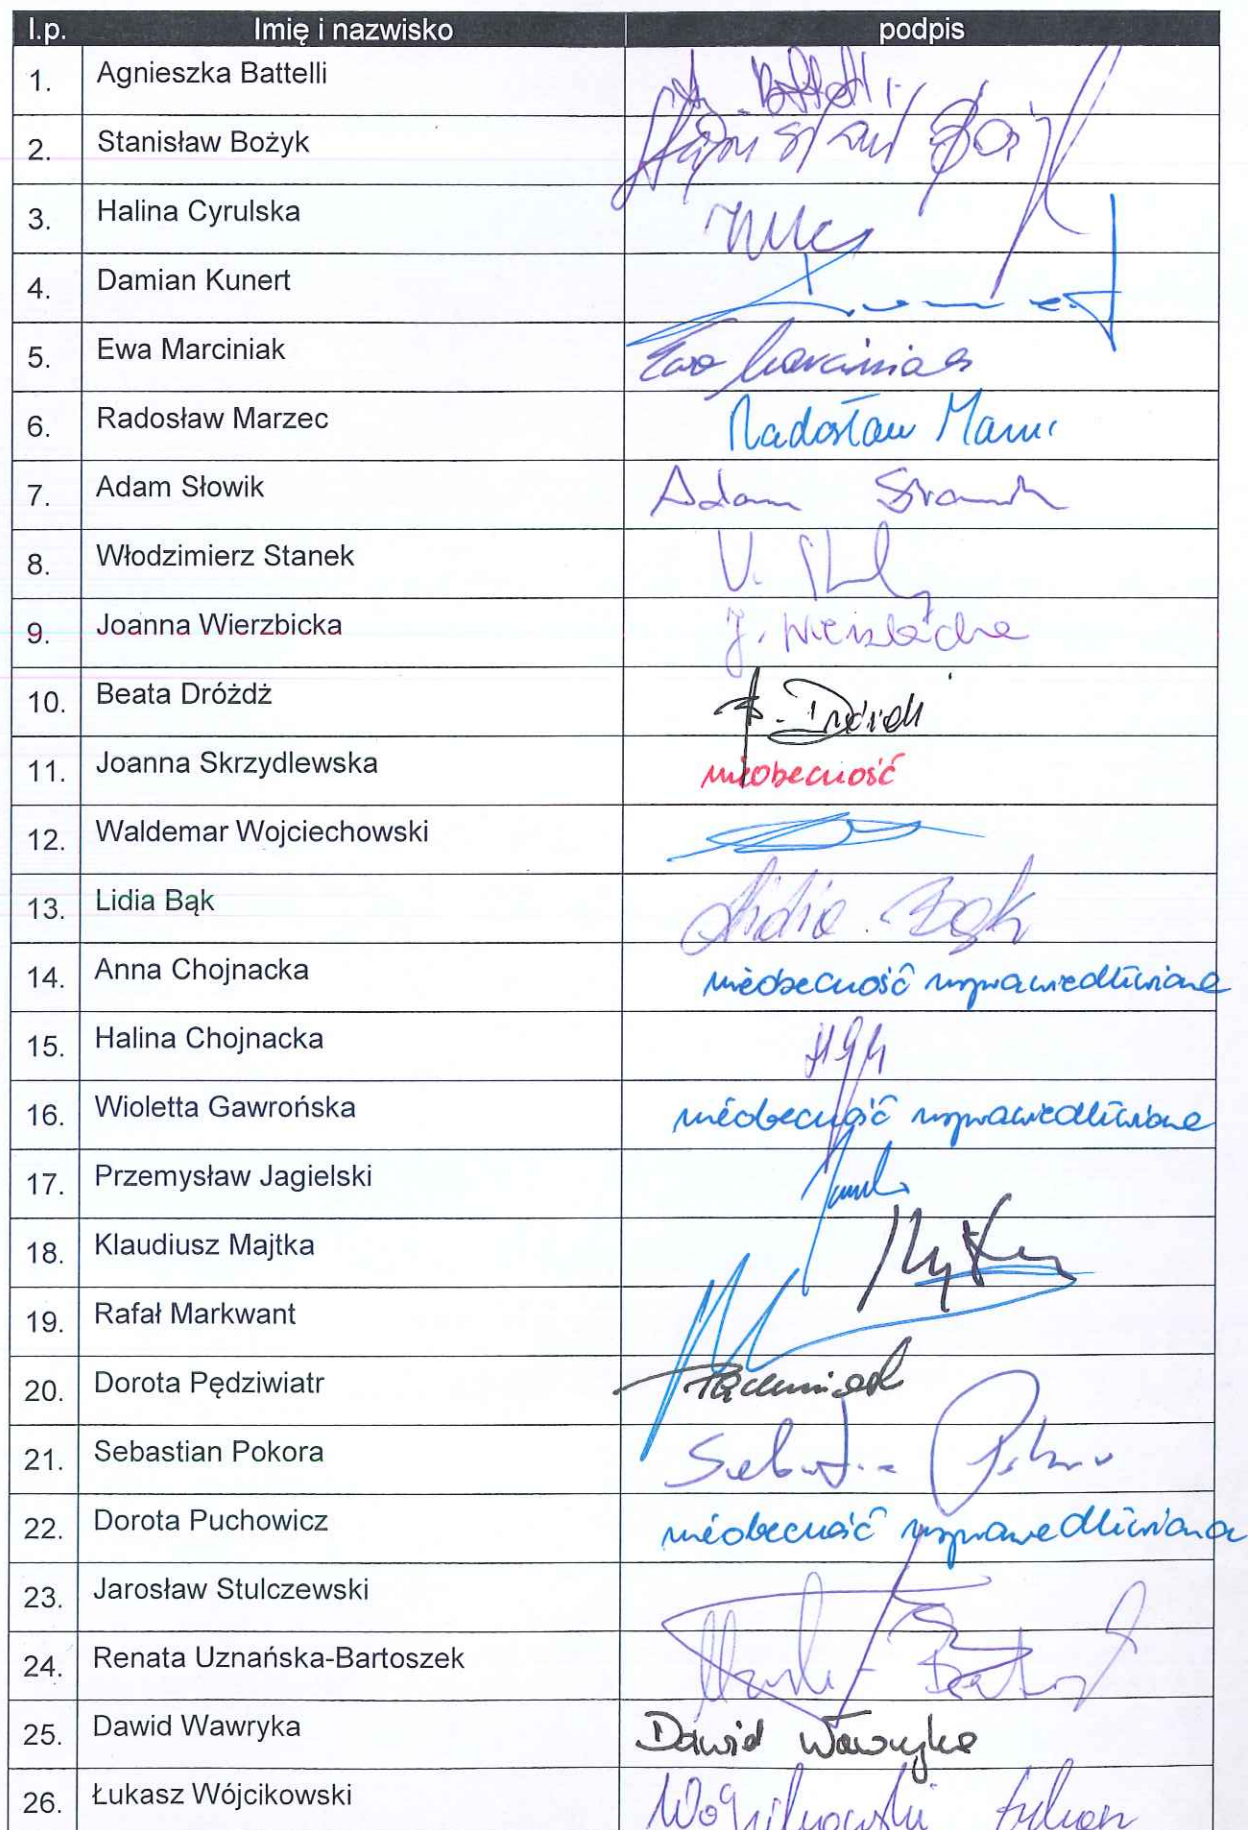 l.p. Imię i nazwisko podpis
1. Agnieszka Battelli A. Battelli
2. Stanisław Bożyk Stanisław
3. Halina Cyrulska
4. Damian Kunert
5. Ewa Marciniak Ewa Marciniak
6. Radosław Marzec Radosław
7. Adam Słowik Adam
8. Włodzimierz Stanek
9. Joanna Wierzbicka J. Wierzbicka
10. Beata Dróżdż
11. Joanna Skrzydlewska nieobecność
12. Waldemar Wojciechowski
13. Lidia Bąk Lidia Bąk
14. Anna Chojnacka nieobecność usprawiedliwiona
15. Halina Chojnacka
16. Wioletta Gawrońska nieobecność usprawiedliwiona
17. Przemysław Jagielski
18. Klaudiusz Majtka
19. Rafał Markwant
20. Dorota Pędziwiatr
21. Sebastian Pokora
22. Dorota Puchowicz nieobecność usprawiedliwiona
23. Jarosław Stulczewski
24. Renata Uznańska-Bartoszek
25. Dawid Wawryka Dawid Wawryka
26. Łukasz Wójcikowski